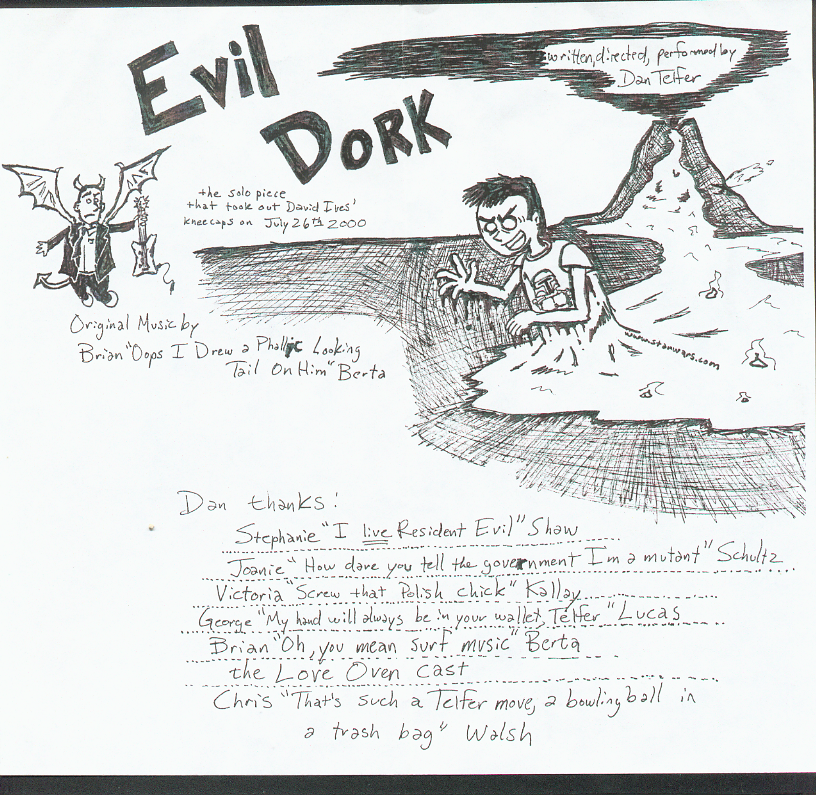 Evil
Dork
written, directed, performed by
Dan Telfer
the solo piece
that took out David Ives'
kneecaps on July 26th 2000
Original Music by
Brian "Oops I Drew a Phallic Looking
Tail On Him" Berta
www.starwars.com
Dan thanks:
Stephanie "I live Resident Evil" Shaw
Joanie "How dare you tell the government I'm a mutant" Schultz
Victoria "Screw that Polish chick" Kallay
George "My hand will always be in your wallet, Telfer" Lucas
Brian "Oh, you mean surf music" Berta
the Love Oven cast
Chris "That's such a Telfer move, a bowling ball in
a trash bag" Walsh